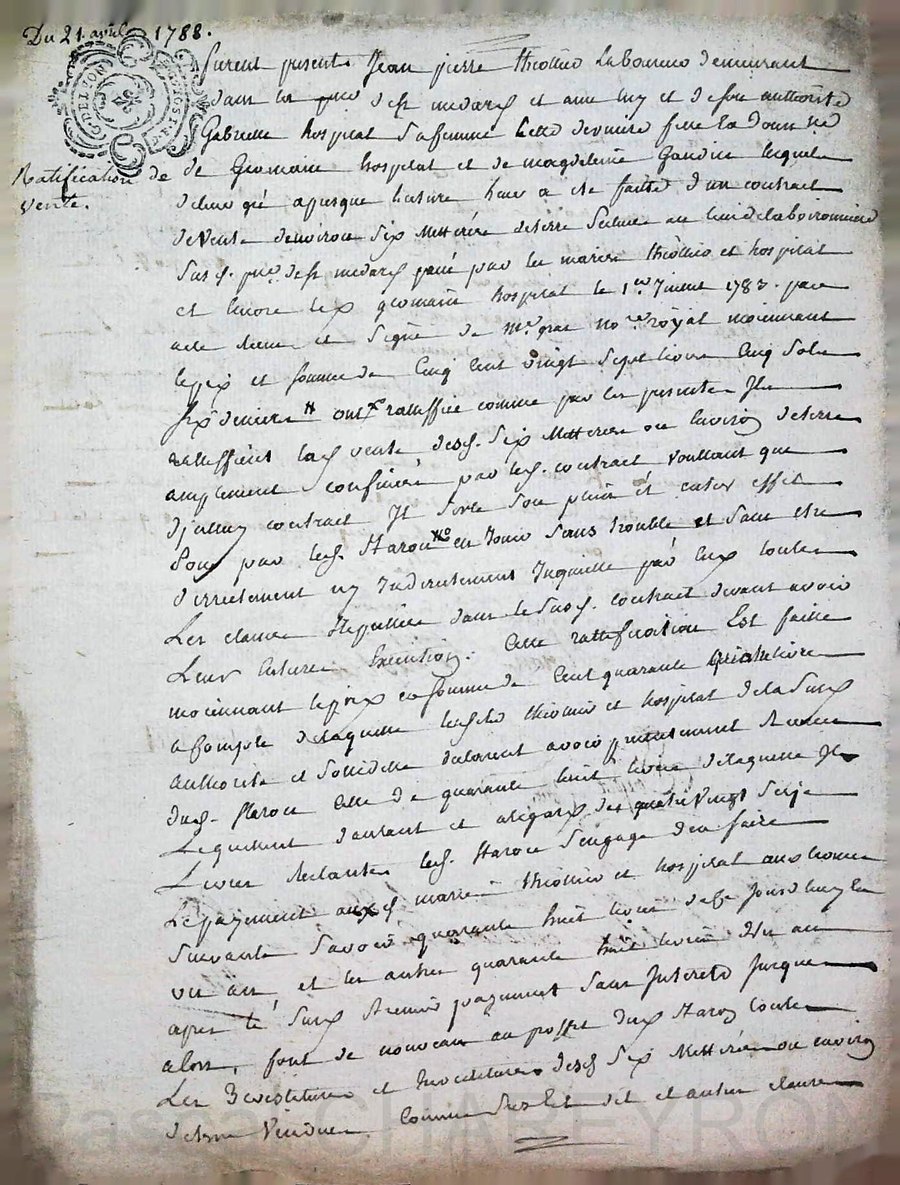 Du 21 avril 1788.
furent presents Jean pierre thiollier Laboureur demeurant
dans la susd de st medard et avec luy et de son authorité
Gabrielle hospital sa femme cette derniere fille a la donnée
Ratification de
vente.
de Germaine hospital et de magdeleine Gaudin lesquels
de leur gré apres que lecture leur a été faite d'un contract
de vente d'environ six mettérée de terre scituée au lieu de la boironniere
susd. psse de st medard passé par les mariés thiollier et hospital
et encore led germain hospital le 1er Juillet 1783. par
acte reçue et signé de Me notre royal moiennant
le prix et somme de Cinq Cent vingt sept livres Cinq sols
six deniers ont ratiffiée comme par les presentes Ils
ratiffient lad vente desd. six Metterée ou environ de terre
amplement confinée par led. contract voullant que
contract Il sorte son plein et entier effet
pour par led. Harou en Jouir sans trouble et sans être
directement ny Indirectement Inquietté par eux toutes
Les clauses stipullée dans le susd. contract devant avoir
Leur entiere Execution. Cette rattification Est faitte
moiennant le prix et somme de Cent quarante livres
a Compte de laquelle lesd thiollier et hospital de la susd
authorité et declarent avoir presentement
dud. Harou celle de quarante huit livres de laquelle Ils
Le quittent d'autant et a l'egard des quatre vingt seize
Livres restantes led. Harou s'engage d'en faire
Le payement auxd mariés thiollier et hospital aux termes
suivants savoir quarante huit livres de ce jourd'huy en
un an, et les autres quarante huit livres Un an
apres le susd premier payement sans Interets Jusques
alors, font de nouveau au proffit dud Harou toutes
Les devestitures et Investitures desd six Metterée ou environ
de terre vendues Comme sus Est dit et autres clauses
Pascal CHABEYRON